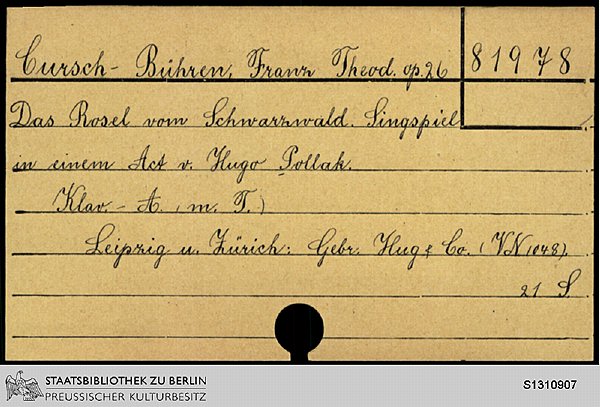 Cursch-Bühren, Franz Theod. op. 26
81978
Das Rosel vom Schwarzwald. Singspiel
in einem Act v. Hugo Pollak.
Klav.-A. (m. T.)
Leipzig u. Zürich: Gebr. Hug & Co. (VN 1048).
21 S.
STAATSBIBLIOTHEK ZU BERLIN
PREUSSISCHER KULTURBESITZ
S1310907